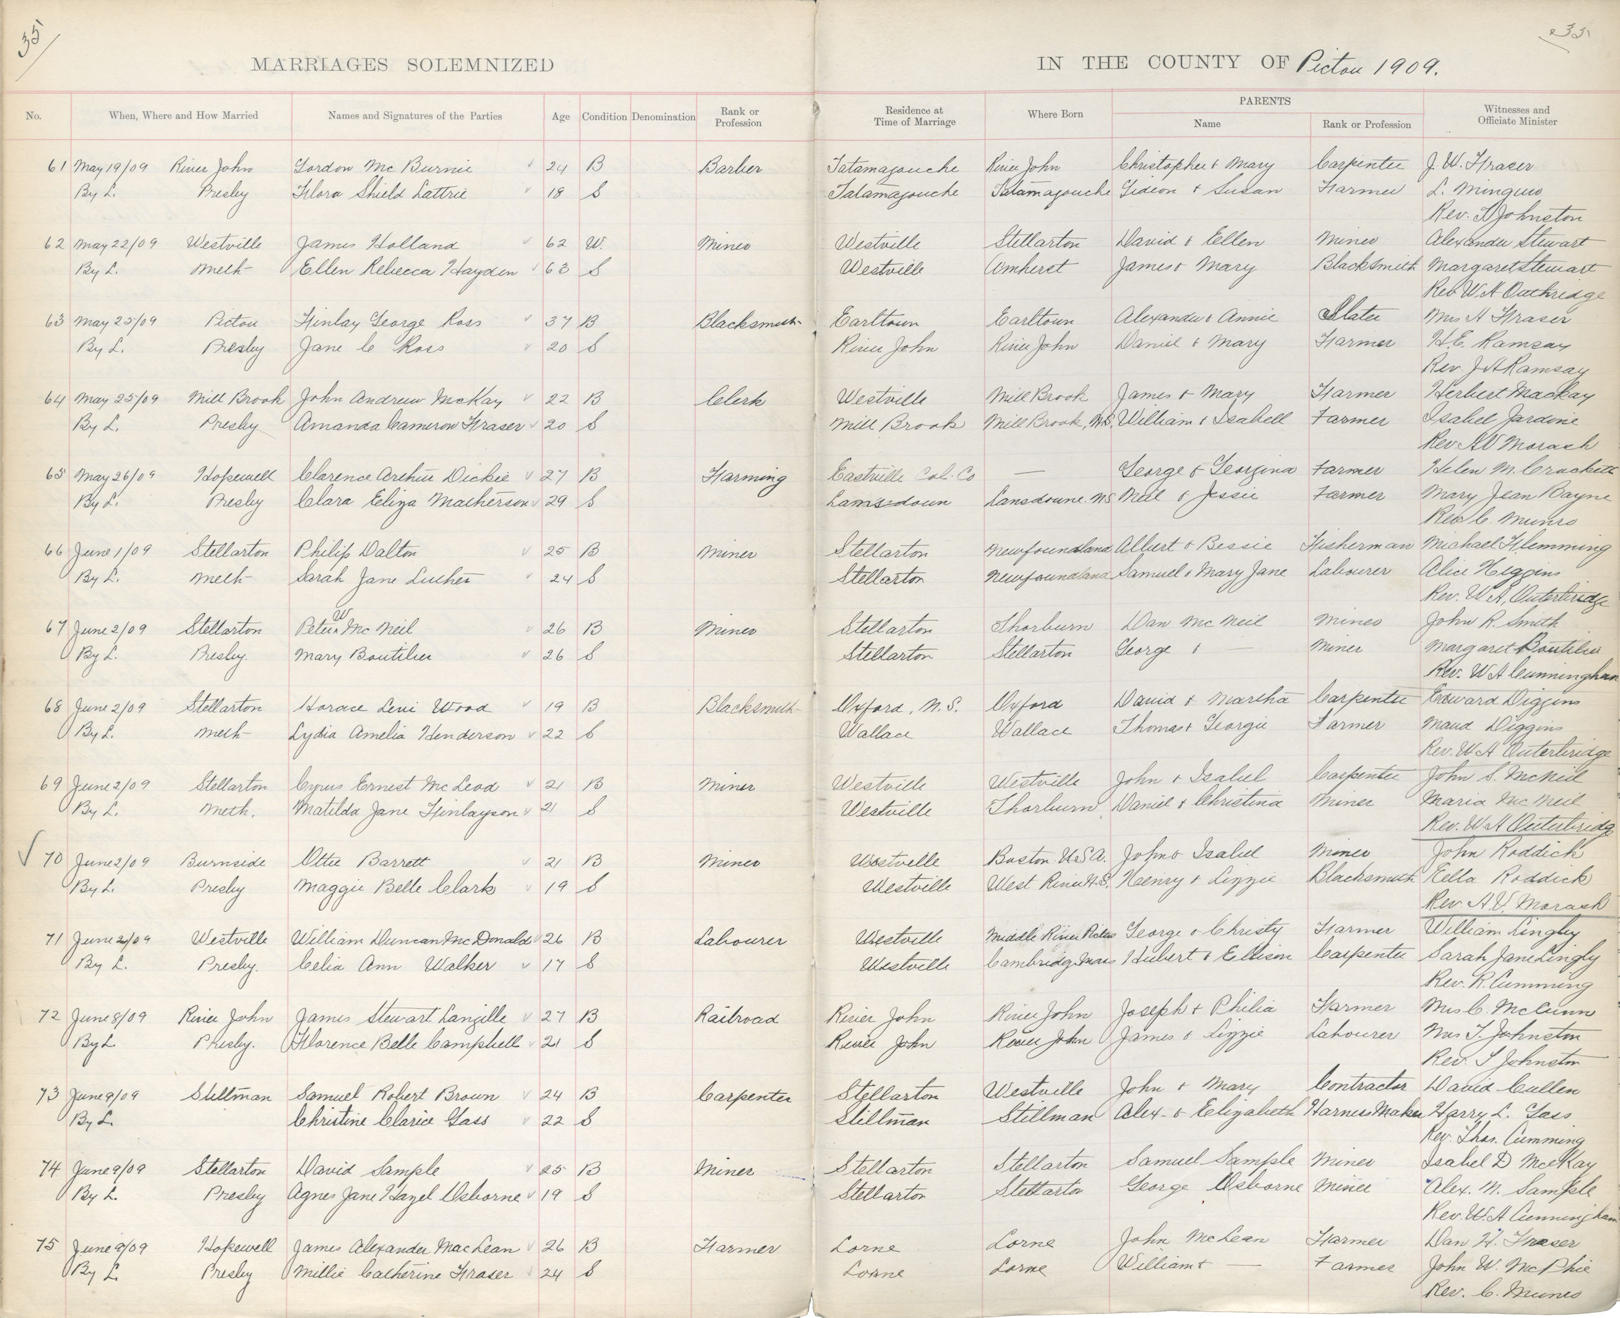 35
35
MARRIAGES SOLEMNIZED IN THE COUNTY OF Pictou 1909.
No. When, Where and How Married Names and Signatures of the Parties Age Condition Denomination Rank or Profession Residence at Time of Marriage Where Born PARENTS Name Rank or Profession Witnesses and Officiate Minister
61 May 19/09 River John Gordon Mc Burnie 24 B Barber Tatamagouche River John Christopher & Mary Carpenter J. W. Fraser
By L. Presby Flora Shield Lattrie 18 S Tatamagouche Tatamagouche Gideon & Susan Farmer L. Mingo
Rev. Johnston
62 May 22/09 Westville James Holland 62 W. Miner Westville Stellarton David & Ellen Miner Alexander Stewart
By L. Meth Ellen Rebecca Hayden 63 S Westville Amherst James & Mary Blacksmith Margaret Stewart
Rev W A
63 May 25/09 Pictou Finlay George Ross 37 B Blacksmith Earltown Earltown Alexander & Annie Slater Mrs A Fraser
By L. Presby Jane C Ross 20 S River John River John Daniel & Mary Farmer H E. Ramsay
Rev. J A Ramsay
64 May 25/09 Mill Brook John Andrew McKay 22 B Clerk Westville Mill Brook James & Mary Farmer Herbert Mackay
By L. Presby Amanda Cameron Fraser 20 S Mill Brook Mill Brook, N.S. William & Isabell Farmer Isabel Jardine
Rev A V Morash
65 May 26/09 Hopewell Clarence Arthur Dickie 27 B Farming Eastville Col. Co — George & Georgina Farmer Helen M. Crockett
By L. Presby Clara Eliza Matherson 29 S Lansdown Lansdowne NS Neil & Jessie Farmer Mary Jean Bayne
Rev C. Munro
66 June 1/09 Stellarton Philip Dalton 25 B Miner Stellarton Newfoundland Albert & Bessie Fisherman Michael Flemming
By L. Meth Sarah Jane Luther 24 S Stellarton Newfoundland Samuel & Mary Jane Labourer Alice Higgins
Rev. W A. Outerbridge
67 June 2/09 Stellarton Peter W Mc Neil 26 B Miner Stellarton Thorburn Dan Mc Neil Miner John R. Smith
By L. Presby. Mary Boutilier 26 S Stellarton Stellarton George & — Miner Margaret Boutilier
Rev. W A Cunningham
68 June 2/09 Stellarton Horace Levi Wood 19 B Blacksmith Oxford, N.S. Oxford David & Martha Carpenter Edward Diggins
By L. Meth Lydia Amelia Henderson 22 S Wallace Wallace Thomas & Georgie Farmer Maud Diggins
Rev. W A Outerbridge
69 June 2/09 Stellarton Cyrus Ernest Mc Leod 21 B Miner Westville Westville John & Isabel Carpenter John S. McNeil
By L. Meth. Matilda Jane Finlayson 21 S Westville Thorburn Daniel & Christina Miner Maria McNeil
Rev. W A Outerbridg
70 June 2/09 Burnside Ottie Barrett 21 B Miner Westville Boston U.S.A. John & Isabel Miner John Roddick
By L. Presby Maggie Belle Clark 19 S Westville West River N.S. Henry & Lizzie Blacksmith Ella Roddick
Rev A. V. Morash
71 June 2/09 Westville William Duncan McDonald 26 B Labourer Westville Middle River Pictou George & Christy Farmer William Lingley
By L. Presby. Celia Ann Walker 17 S Westville Cambridge Mass Hubert & Ellison Carpenter Sarah Jane Lingly
Rev. R. Cumming
72 June 8/09 River John James Stewart Langille 27 B Railroad River John River John Joseph & Philia Farmer Mrs C. McCunn
By L Presby. Florence Belle Campbell 21 S River John River John James & Lizzie Labourer Mrs T. Johnston
Rev. T Johnston
73 June 9/09 Stillman Samuel Robert Brown 24 B Carpenter Stellarton Westville John & Mary Contractor David Cullen
By L. Christine Clarice Gass 22 S Stillman Stillman Alex. & Elizabeth Harness Maker Harry L. Gass
Rev. Thos. Cumming
74 June 9/09 Stellarton David Sample 25 B Miner Stellarton Stellarton Samuel Sample Miner Isabel D McKay
By L. Presby Agnes Jane Hazel Osborne 19 S Stellarton Stellarton George Osborne Miner Alex. M. Sample
Rev. W. A Cunningham
75 June 9/09 Hopewell James Alexander MacLean 26 B Farmer Lorne Lorne John McLean Farmer Dan H. Fraser
By L Presby Millie Catherine Fraser 24 S Lorne Lorne William & — Farmer John W. McPhie
Rev. C. Munro